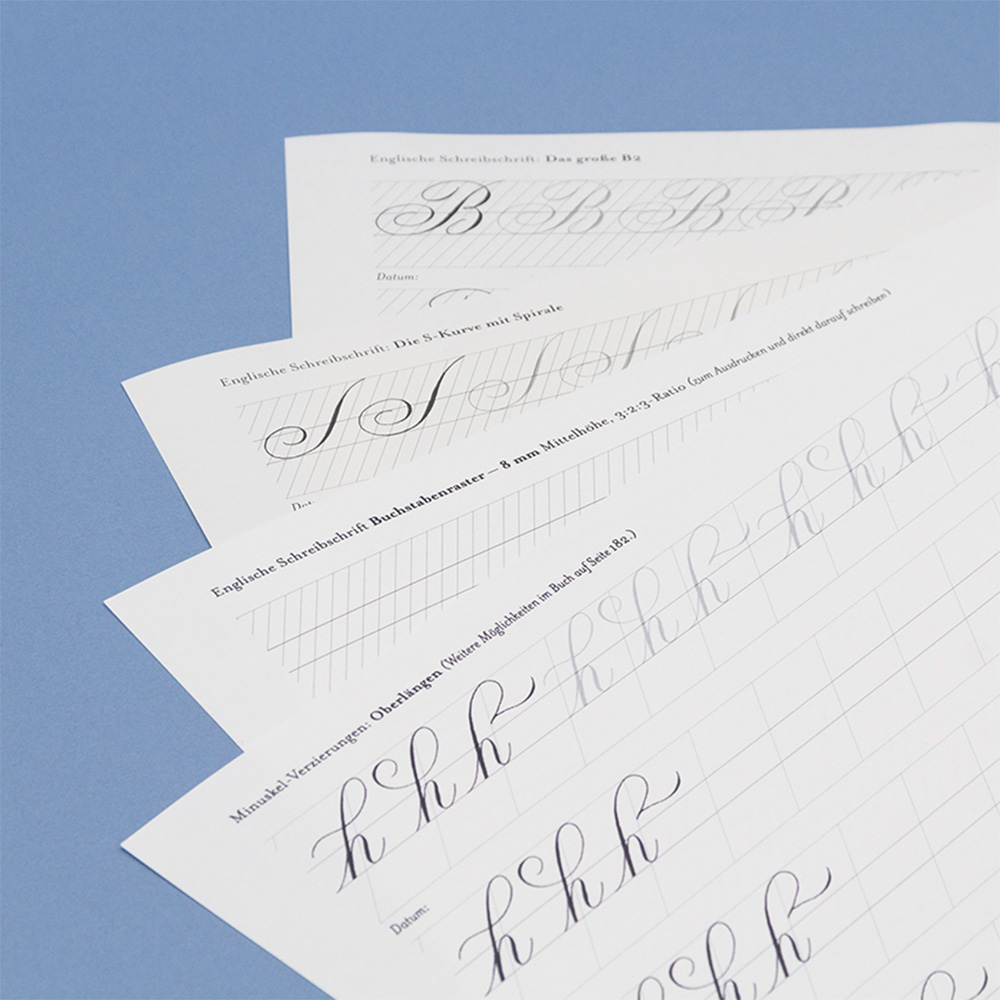 Englische Schreibschrift: Das große B2
B B B B
Datum:
Englische Schreibschrift: Die S-Kurve mit Spirale
Englische Schreibschrift Buchstabenraster – 8 mm Mittelhöhe, 3:2:3-Ratio (zum Ausdrucken und direkt darauf schreiben)
Minuskel-Verzierungen: Oberlängen (Weitere Möglichkeiten im Buch auf Seite 182.)
h h h h h h h h h h
Datum:
h h h
h h